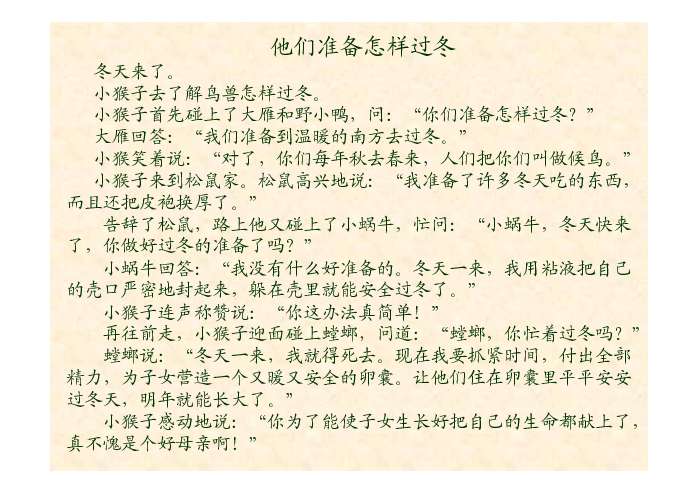 他们准备怎样过冬
冬天来了。
小猴子去了解鸟兽怎样过冬。
小猴子首先碰上了大雁和野小鸭，问：“你们准备怎样过冬？”
大雁回答：“我们准备到温暖的南方去过冬。”
小猴笑着说：“对了，你们每年秋去春来，人们把你们叫做候鸟。”
小猴子来到松鼠家。松鼠高兴地说：“我准备了许多冬天吃的东西，
而且还把皮袍换厚了。”
告辞了松鼠，路上他又碰上了小蜗牛，忙问：“小蜗牛，冬天快来
了，你做好过冬的准备了吗？”
小蜗牛回答：“我没有什么好准备的。冬天一来，我用粘液把自己
的壳口严密地封起来，躲在壳里就能安全过冬了。”
小猴子连声称赞说：“你这办法真简单！”
再往前走，小猴子迎面碰上螳螂，问道：“螳螂，你忙着过冬吗？”
螳螂说：“冬天一来，我就得死去。现在我要抓紧时间，付出全部
精力，为子女营造一个又暖又安全的卵囊。让他们住在卵囊里平平安安
过冬天，明年就能长大了。”
小猴子感动地说：“你为了能使子女生长好把自己的生命都献上了，
真不愧是个好母亲啊！”